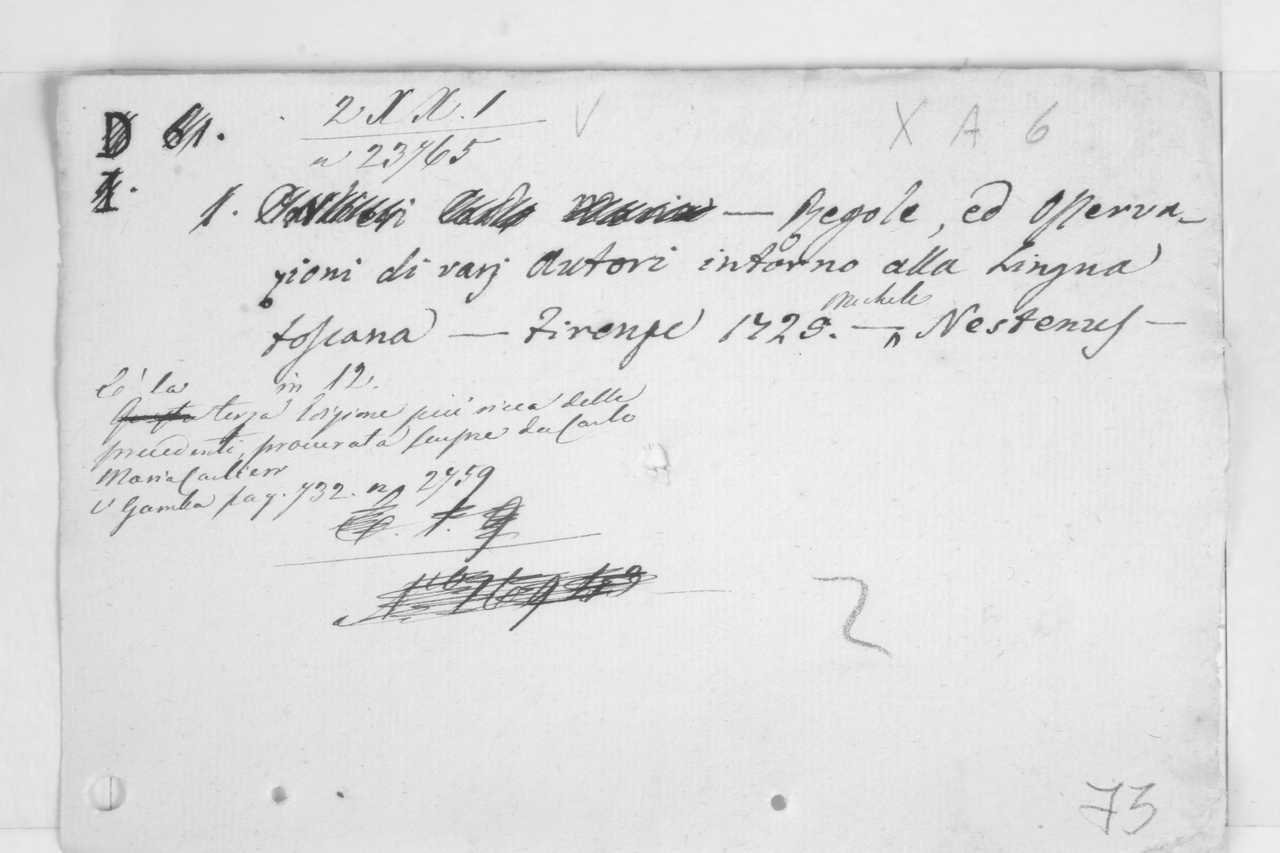 D 61. 2 X X. 1 V X A 6
n 23765
I.
1. Gualtieri Carlo Maria — Regole, ed Osserva-
zioni di varj Autori intorno alla Lingua
toscana — Firenze 1725. — Michele Nestenus —
in 12.
È la terza Edizione più ricca delle
precedenti, procurata sempre da Carlo
Maria Gualtieri
V Gamba pag. 732. n. 2759
2
73